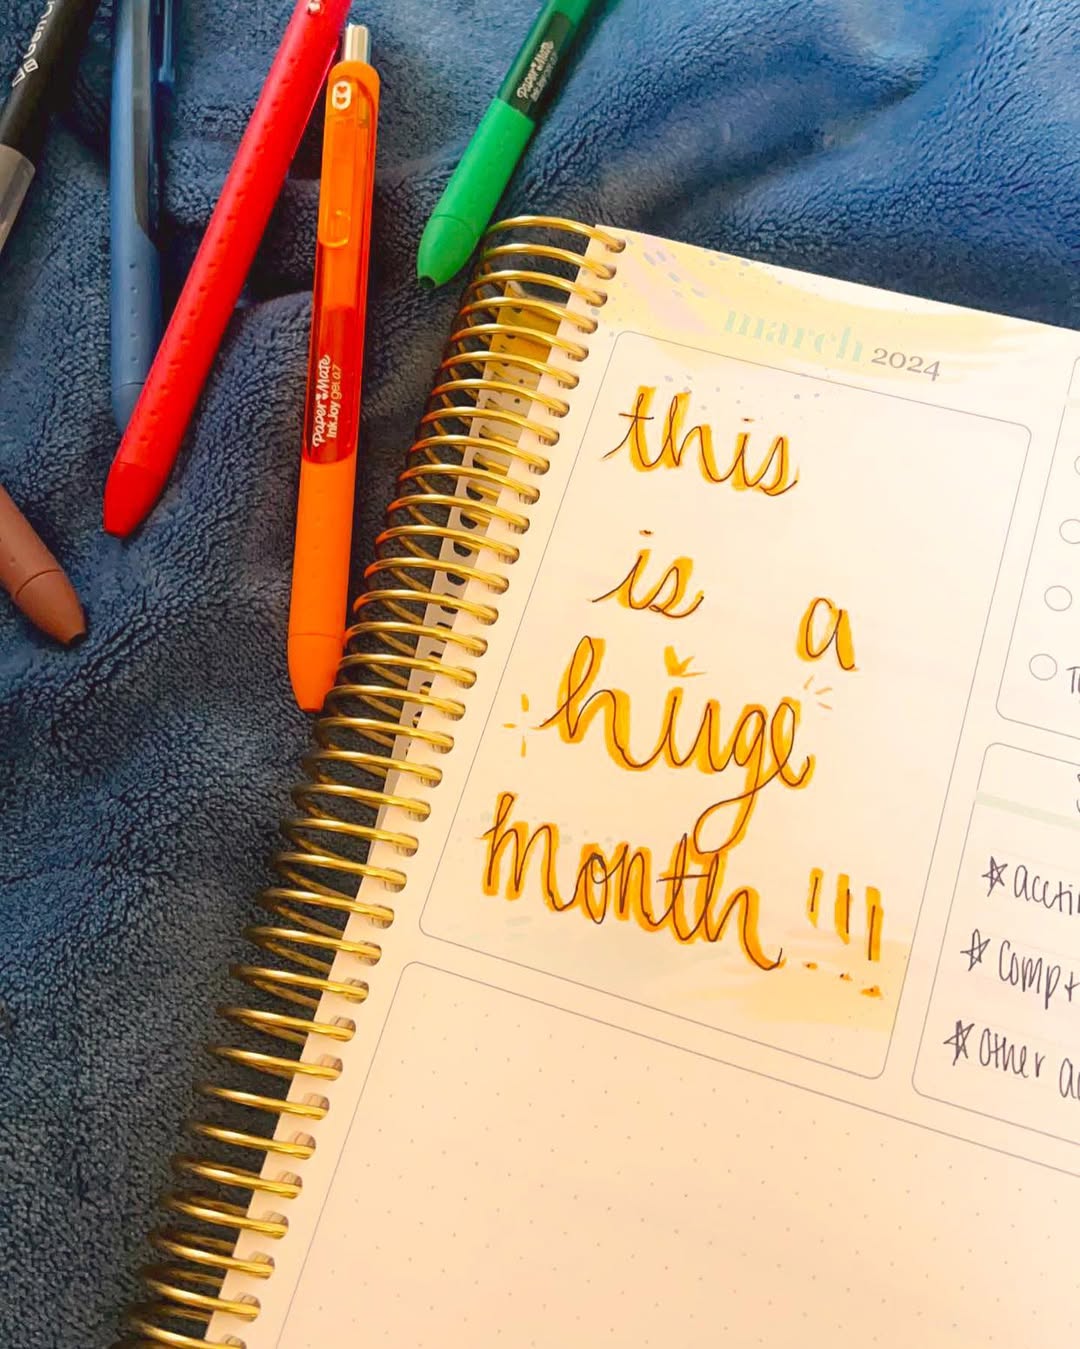 Paper Mate
InkJoy gel 0.7
Paper Mate
InkJoy gel 0.7
march 2024
this
is a
huge
month!!!
other